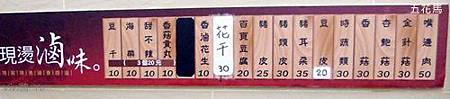 五花馬
現燙滷味。
豆干 10
海帶 10
甜不辣 10
香菇貢丸 10
3個20元
香滷花生 10
花干 30
百頁豆腐 20
豬皮 25
豬頭皮 30
豬耳朵 35
豆 20
時蔬 30
香菇 30
杏包菇 30
金針菇 30
嘴邊肉 50